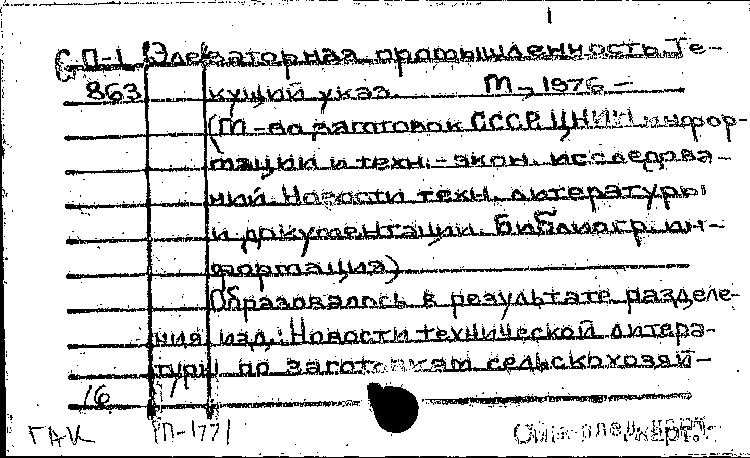 1
С П-1 Элеваторная промышленность. Те-
863 кущий указ. М., 1976 -
(М-во заготовок СССР. ЦНИИ инфор-
мации и техн.-экон. исследова-
ний. Новости техн. литературы
и документации. Библиогр. ин-
формация)
Образовалось в результате разделе-
ния изд.: Новости технической литера-
туры по заготовкам сельскохозяй-
16
ГАК П-1771